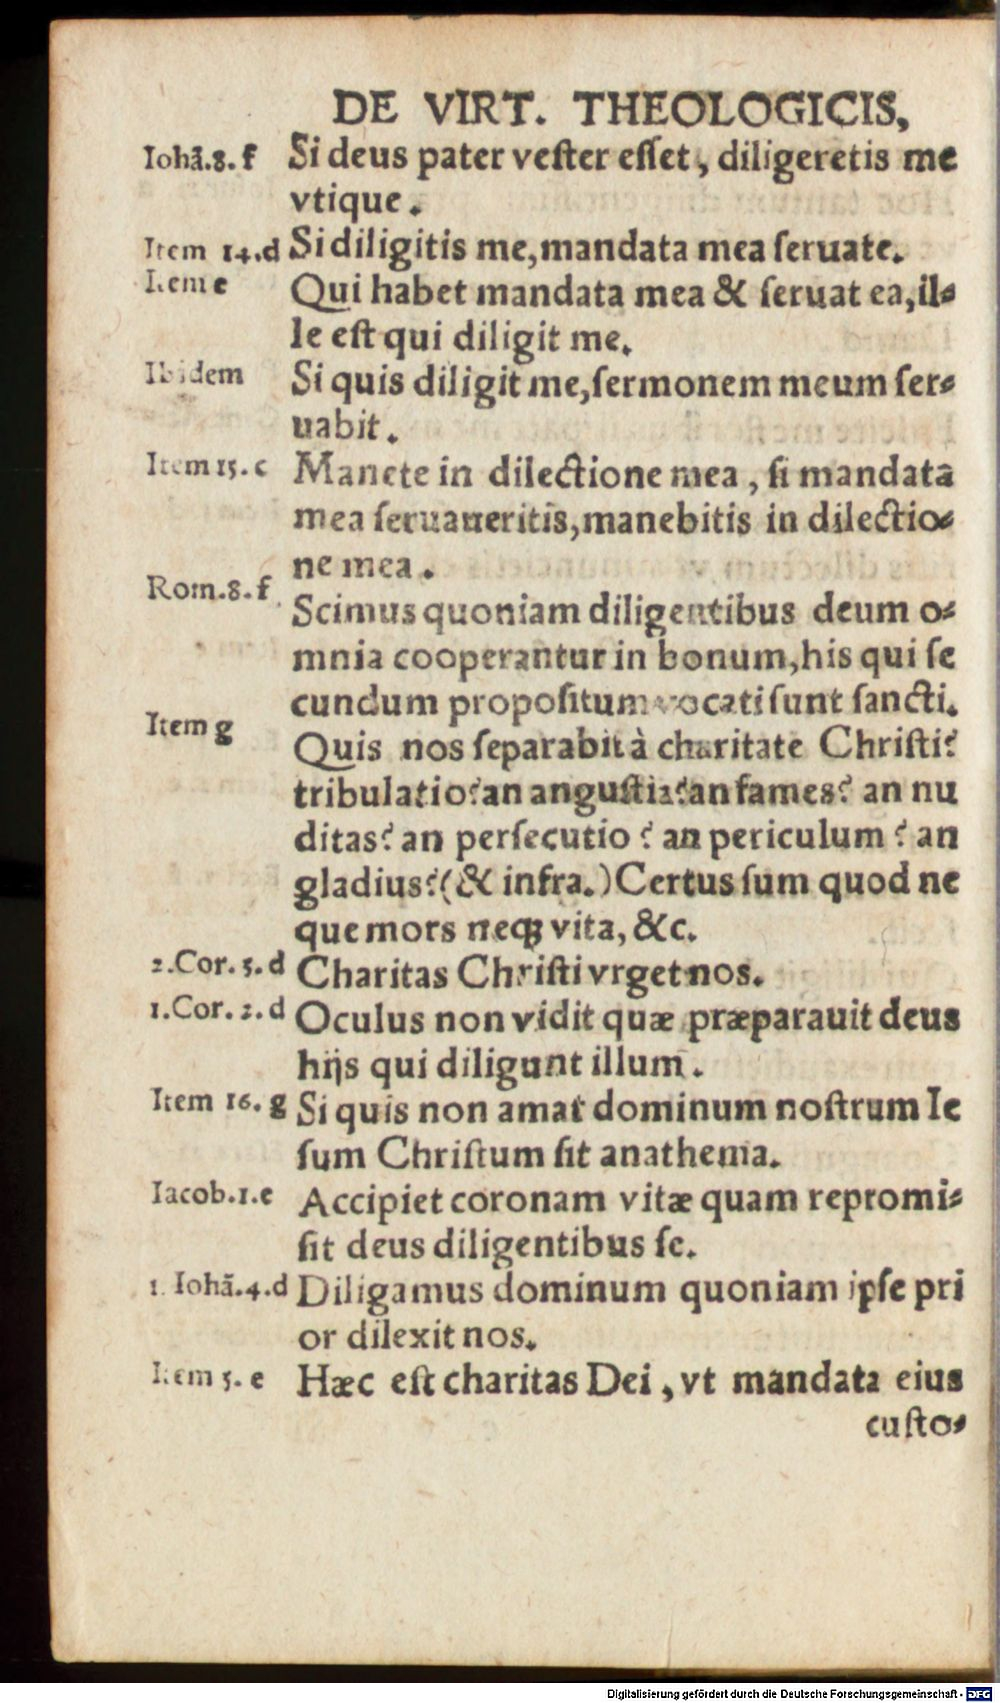 DE VIRT. THEOLOGICIS,
Iohā.8.f Si deus pater veſter eſſet, diligeretis me
vtique.
Item 14.d Si diligitis me, mandata mea ſeruate.
Item e Qui habet mandata mea & ſeruat ea, il⸗
le eſt qui diligit me.
Ibidem Si quis diligit me, ſermonem meum ſer⸗
uabit.
Item 15.c Manete in dilectione mea, ſi mandata
mea ſeruaueritis, manebitis in dilectio⸗
ne mea.
Rom.8.f Scimus quoniam diligentibus deum o⸗
mnia cooperantur in bonum, his qui ſe
cundum propoſitum vocati ſunt ſancti.
Item g Quis nos ſeparabit à charitate Chriſti?
tribulatio? an anguſtia? an fames? an nu
ditas? an perſecutio? an periculum? an
gladius? (& infra.) Certus ſum quod ne
que mors neqꝫ vita, &c.
2.Cor.5.d Charitas Chriſti vrget nos.
1.Cor.2.d Oculus non vidit quæ præparauit deus
hijs qui diligunt illum.
Item 16.g Si quis non amat dominum noſtrum Ie
ſum Chriſtum ſit anathema.
Iacob.1.e Accipiet coronam vitæ quam repromi⸗
ſit deus diligentibus ſe.
1. Iohā.4.d Diligamus dominum quoniam ipſe pri
or dilexit nos.
Item 5.e Hæc eſt charitas Dei, vt mandata eius
cuſto⸗
Digitalisierung gefördert durch die Deutsche Forschungsgemeinschaft - DFG